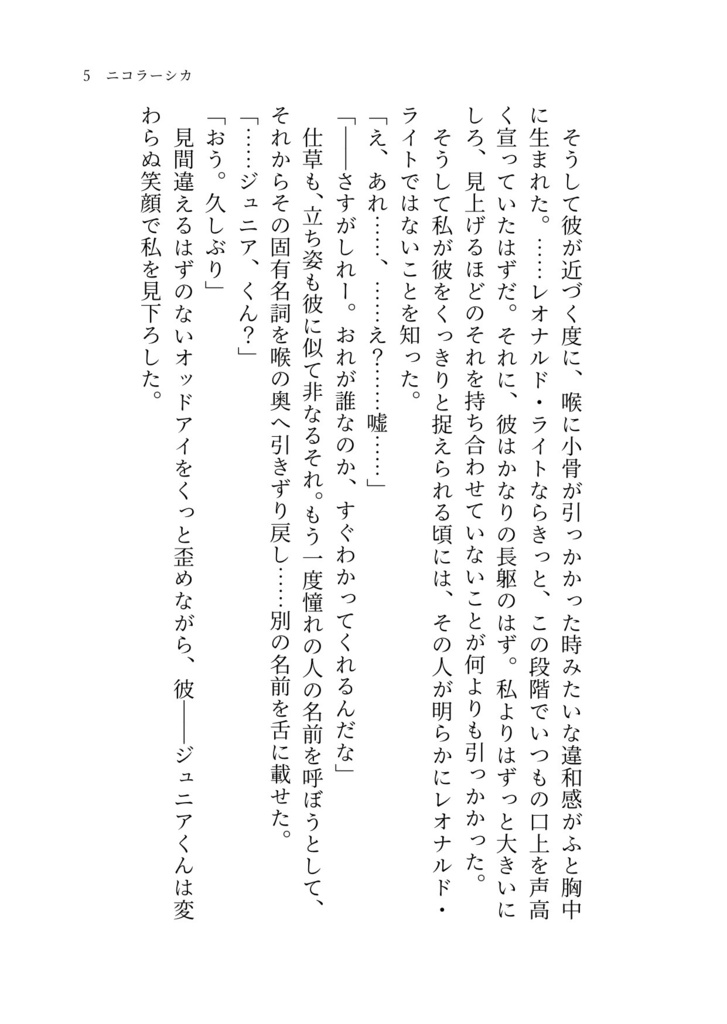 5 ニコラーシカ
そうして彼が近づく度に、喉に小骨が引っかかった時みたいな違和感がふと胸中
に生まれた。……レオナルド・ライトならきっと、この段階でいつもの口上を声高
く宣っていたはずだ。それに、彼はかなりの長躯のはず。私よりはずっと大きいに
しろ、見上げるほどのそれを持ち合わせていないことが何よりも引っかかった。
そうして私が彼をくっきりと捉えられる頃には、その人が明らかにレオナルド・
ライトではないことを知った。
「え、あれ……、……え？……嘘……」
「――さすがしれー。おれが誰なのか、すぐわかってくれるんだな」
仕草も、立ち姿も彼に似て非なるそれ。もう一度憧れの人の名前を呼ぼうとして、
それからその固有名詞を喉の奥へ引きずり戻し……別の名前を舌に載せた。
「……ジュニア、くん？」
「おう。久しぶり」
見間違えるはずのないオッドアイをくっと歪めながら、彼――ジュニアくんは変
わらぬ笑顔で私を見下ろした。